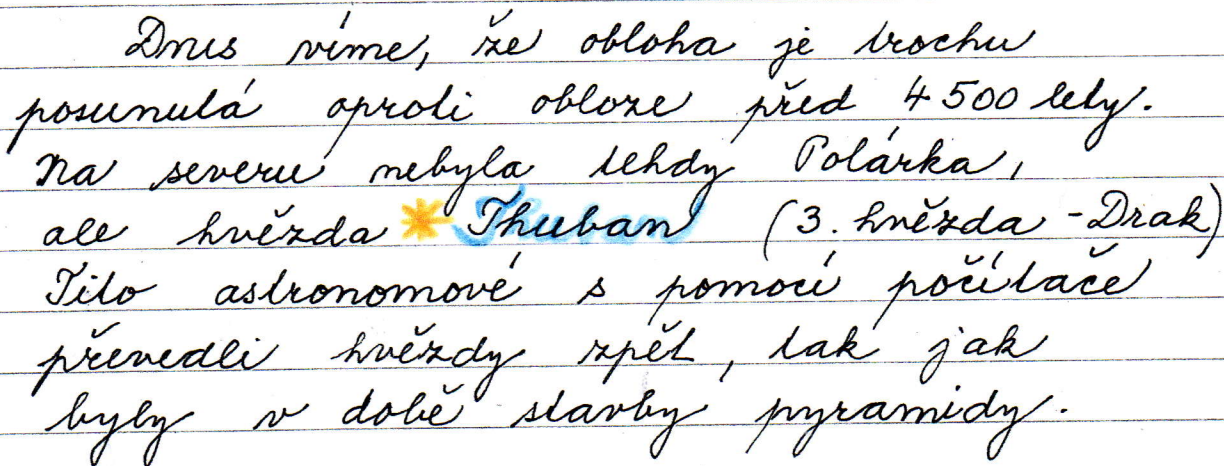 Dnes víme, že obloha je trochu
posunutá oproti obloze před 4 500 lety.
Na severu nebyla tehdy Polárka,
ale hvězda * Thuban (3. hvězda - Drak)
Tito astronomové s pomocí počítače
převedli hvězdy zpět, tak jak
byly v době stavby pyramidy.